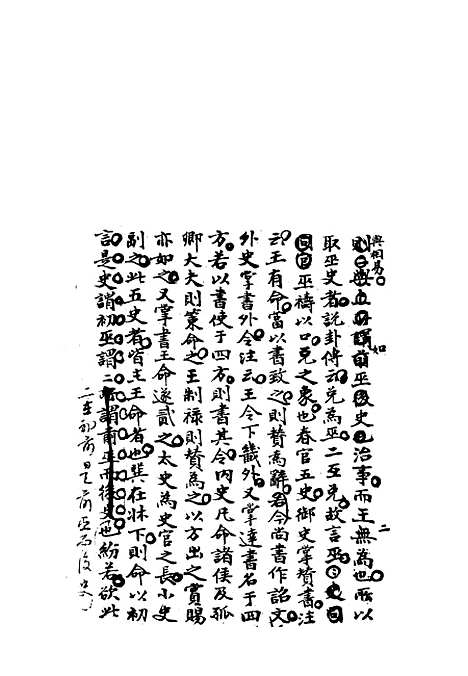 與相易
則與所謂前巫後史也治事而王無為也所以
如
二
取巫史者說卦傳云兌為巫二互兌故言巫史
巫禱以口兌之象也春官五史御史掌贊書注
云王有命當以書致之則贊為辭若今尚書作詔文
外史掌書外令注云王令下畿外又掌達書名于四
方若以書使于四方則書其令內史凡命諸侯及孤
卿大夫則策命之王制祿則贊為之以方出之賞賜
亦如之又掌書王命遂貳之太史為史官之長小史
副之此五史者皆主王命者也巽在牀下則命以初
言是史謂初巫謂二所謂前巫而後史也紛若欲此
二在初前是前巫而後史